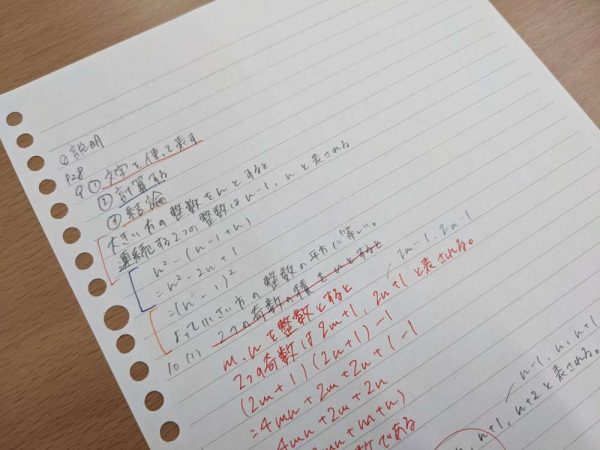 ◎説明
P28
9 ① 文字を使って表す
② 計算する
③ 結論
大きい方の整数をnとすると
連続する2つの整数はn-1, nと表される
n²-(n-1+n)
=n²-2n+1
=(n-1)²
よって小さい方の整数の平方に等しい。
10 (1) 2つの奇数の積をnとすると
m, nを整数とすると
2m-1, 2n-1
2つの奇数は2m+1, 2n+1と表される。
(2m+1)(2n+1)-1
=4mn+2m+2n+1-1
4mn+2m+2n
mn+m+n)
数である
n-1, n, n+1
n+1, n+2と表される。